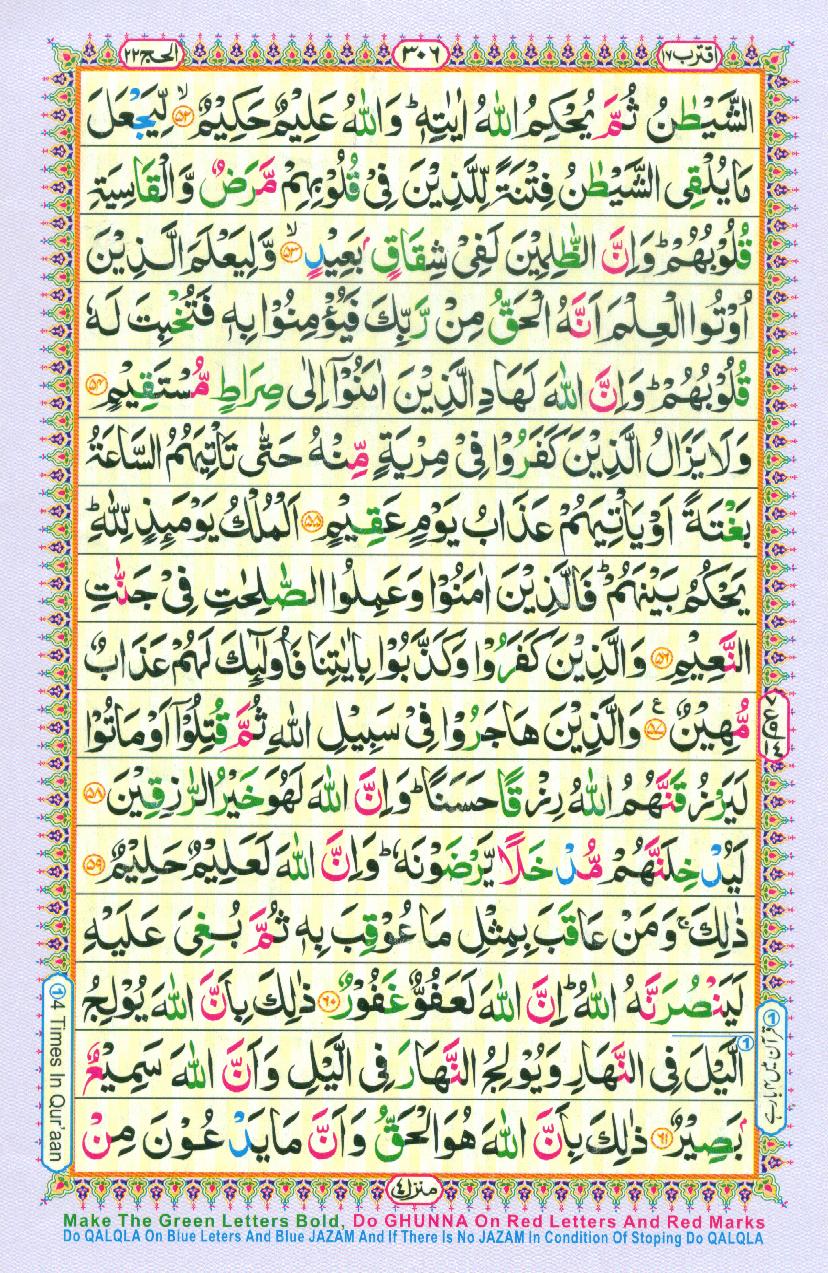 اقترب ١٧
٣٠٦
الحج ٢٢
الشَّيْطٰنُ ثُمَّ يُحْكِمُ اللّٰهُ اٰيٰتِهٖ ؕ وَاللّٰهُ عَلِيْمٌ حَكِيْمٌ ۙ﴿٥٢﴾ لِّيَجْعَلَ
مَا يُلْقِى الشَّيْطٰنُ فِتْنَةً لِّلَّذِيْنَ فِىْ قُلُوْبِهِمْ مَّرَضٌ وَّالْقَاسِيَةِ
قُلُوْبُهُمْ ؕ وَاِنَّ الظّٰلِمِيْنَ لَفِىْ شِقَاقٍۭ بَعِيْدٍ ۙ﴿٥٣﴾ وَّلِيَعْلَمَ الَّذِيْنَ
اُوْتُوا الْعِلْمَ اَنَّهُ الْحَقُّ مِنْ رَّبِّكَ فَيُؤْمِنُوْا بِهٖ فَتُخْبِتَ لَهٗ
قُلُوْبُهُمْ ؕ وَاِنَّ اللّٰهَ لَهَادِ الَّذِيْنَ اٰمَنُوْۤا اِلٰى صِرَاطٍ مُّسْتَقِيْمٍ ﴿٥٤﴾
وَلَا يَزَالُ الَّذِيْنَ كَفَرُوْا فِىْ مِرْيَةٍ مِّنْهُ حَتّٰى تَاْتِيَهُمُ السَّاعَةُ
بَغْتَةً اَوْ يَاْتِيَهُمْ عَذَابُ يَوْمٍ عَقِيْمٍ ﴿٥٥﴾ اَلْمُلْكُ يَوْمَئِذٍ لِّلّٰهِ ؕ
يَحْكُمُ بَيْنَهُمْ ؕ فَالَّذِيْنَ اٰمَنُوْا وَعَمِلُوا الصّٰلِحٰتِ فِىْ جَنّٰتِ
النَّعِيْمِ ﴿٥٦﴾ وَالَّذِيْنَ كَفَرُوْا وَكَذَّبُوْا بِاٰيٰتِنَا فَاُولٰٓئِكَ لَهُمْ عَذَابٌ
مُّهِيْنٌ ﴿٥٧﴾ ع وَالَّذِيْنَ هَاجَرُوْا فِىْ سَبِيْلِ اللّٰهِ ثُمَّ قُتِلُوْۤا اَوْ مَاتُوْا
لَيَرْزُقَنَّهُمُ اللّٰهُ رِزْقًا حَسَنًا ؕ وَاِنَّ اللّٰهَ لَهُوَ خَيْرُ الرّٰزِقِيْنَ ﴿٥٨﴾
لَيُدْخِلَنَّهُمْ مُّدْخَلًا يَّرْضَوْنَهٗ ؕ وَاِنَّ اللّٰهَ لَعَلِيْمٌ حَلِيْمٌ ﴿٥٩﴾
ذٰلِكَ ۚ وَمَنْ عَاقَبَ بِمِثْلِ مَا عُوْقِبَ بِهٖ ثُمَّ بُغِىَ عَلَيْهِ
لَيَنْصُرَنَّهُ اللّٰهُ ؕ اِنَّ اللّٰهَ لَعَفُوٌّ غَفُوْرٌ ﴿٦٠﴾ ذٰلِكَ بِاَنَّ اللّٰهَ يُوْلِجُ
الَّيْلَ فِى النَّهَارِ وَيُوْلِجُ النَّهَارَ فِى الَّيْلِ وَاَنَّ اللّٰهَ سَمِيْعٌۢ
بَصِيْرٌ ﴿٦١﴾ ذٰلِكَ بِاَنَّ اللّٰهَ هُوَ الْحَقُّ وَاَنَّ مَا يَدْعُوْنَ مِنْ
① 4 Times In Qur'aan
① قرآن میں ۴ بار ہے
منزل ٤
Make The Green Letters Bold, Do GHUNNA On Red Letters And Red Marks
Do QALQLA On Blue Leters And Blue JAZAM And If There Is No JAZAM In Condition Of Stoping Do QALQLA